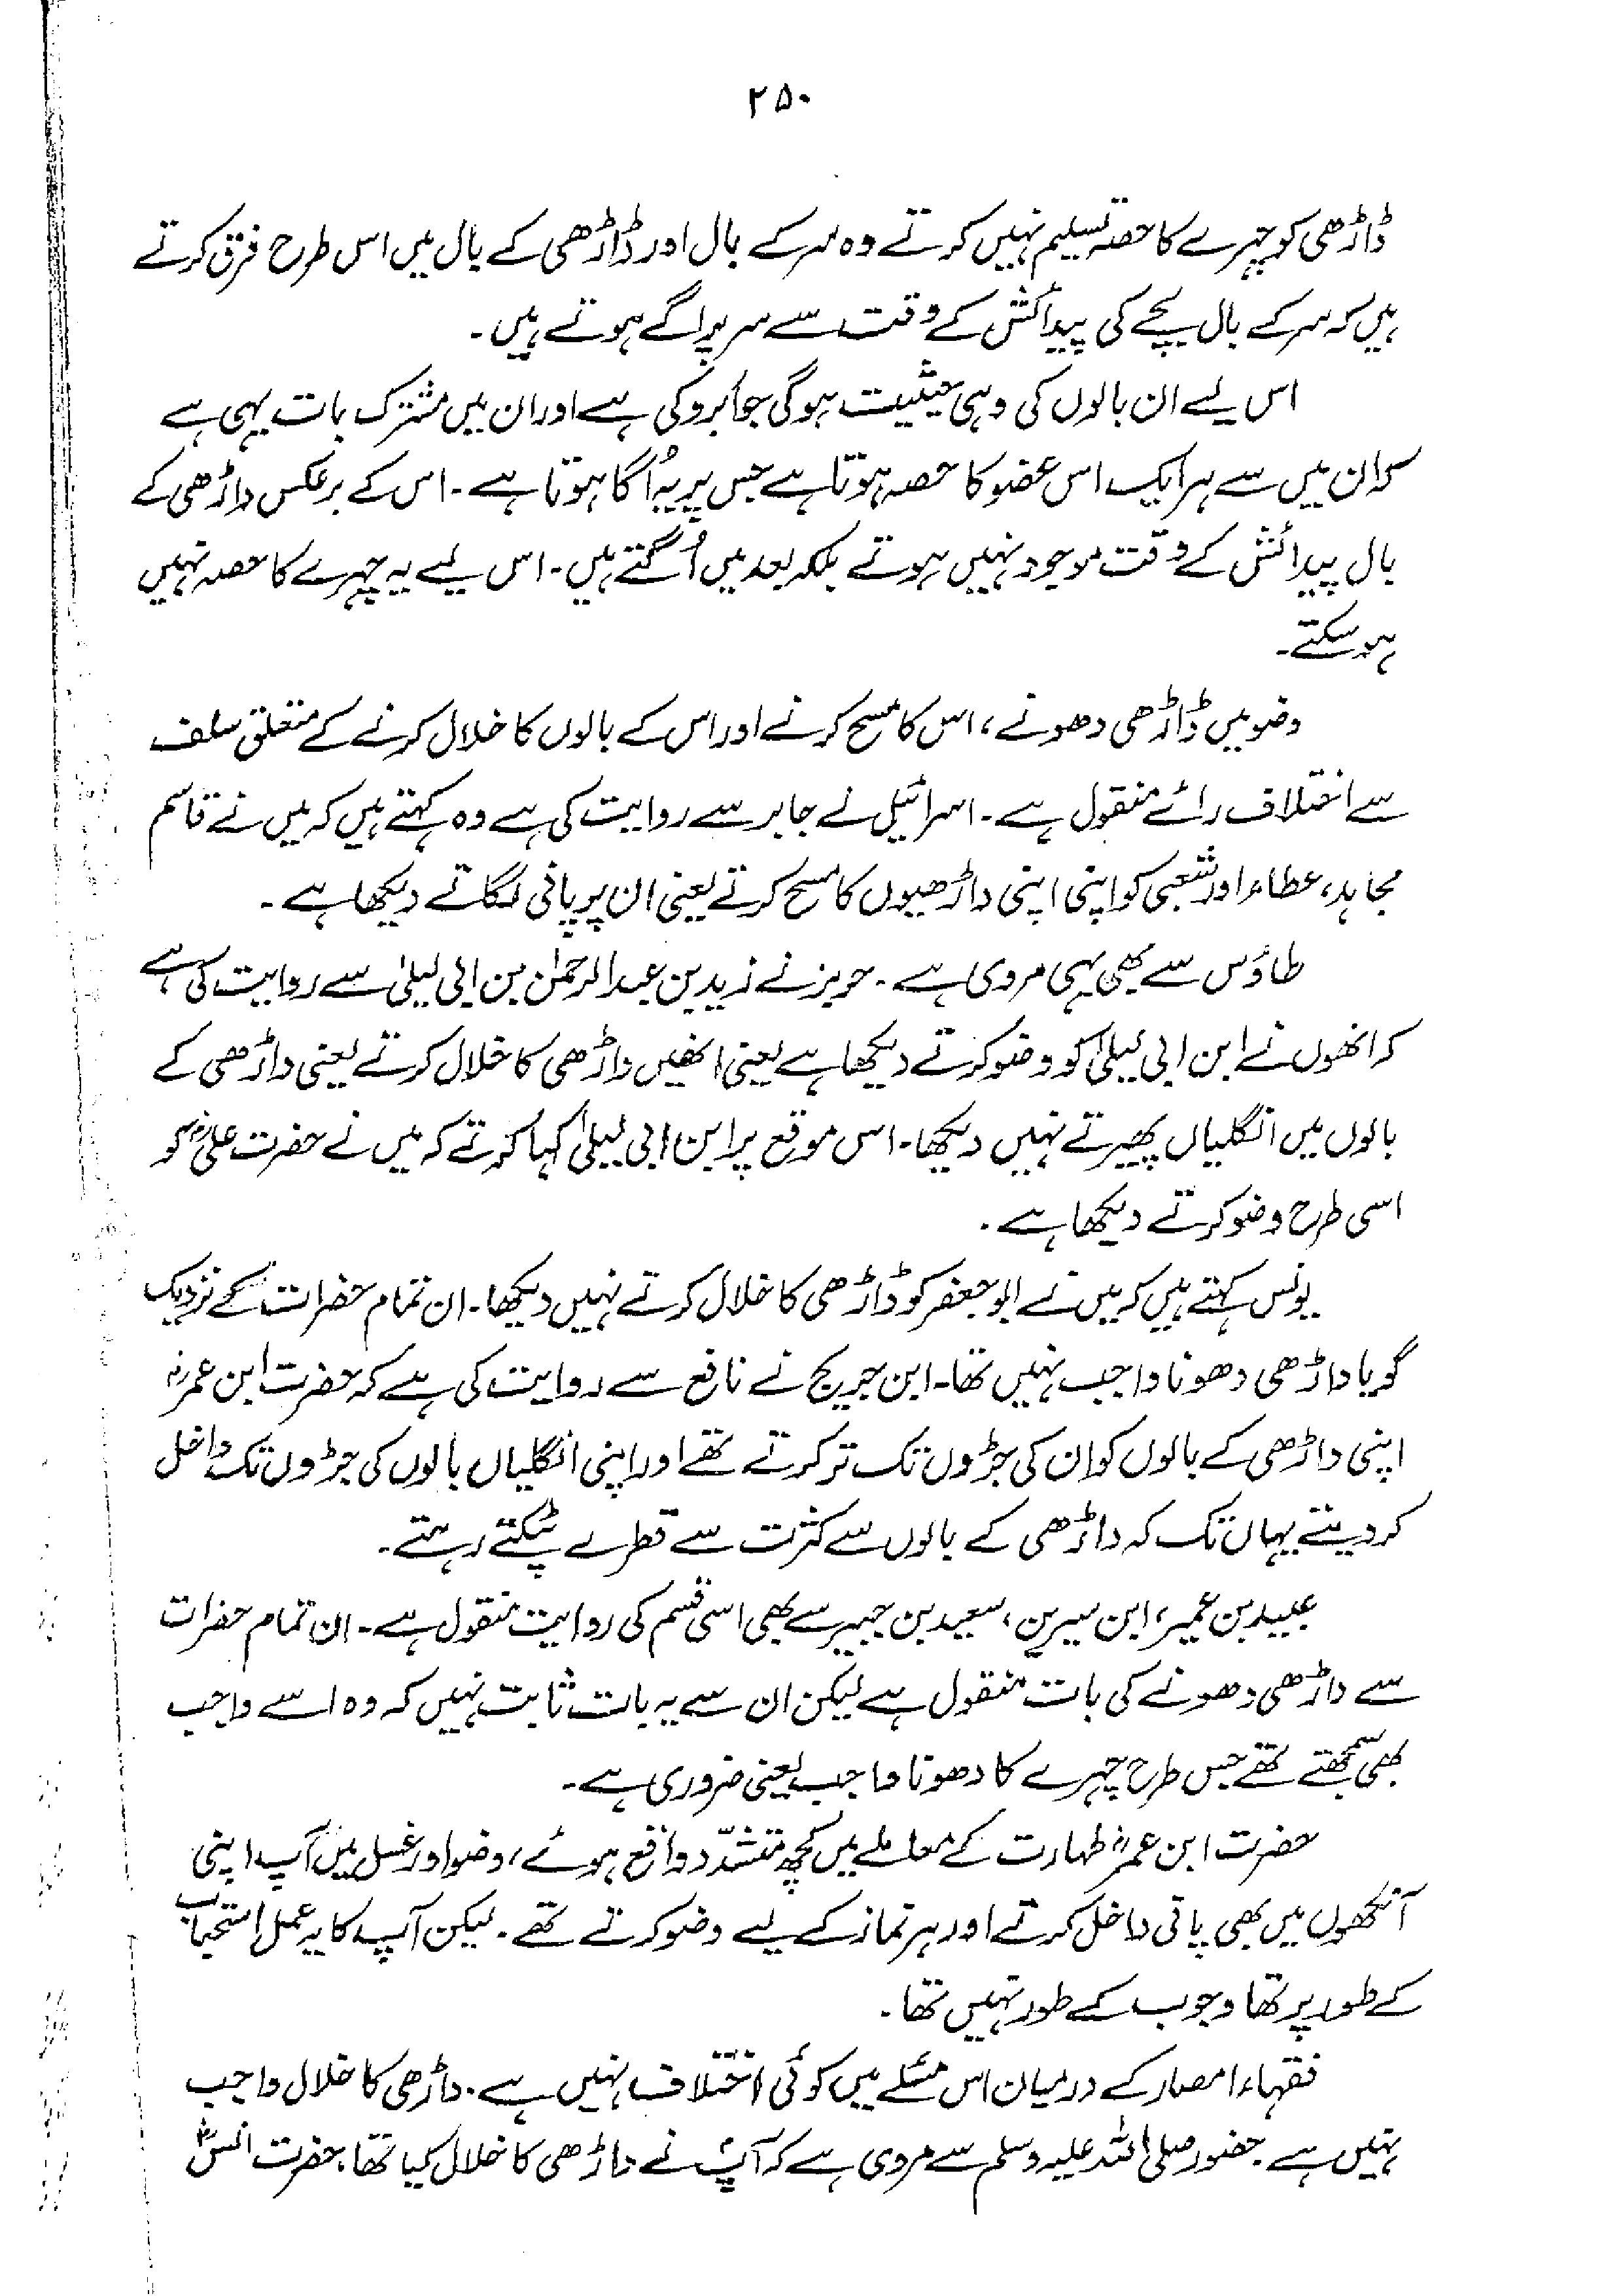 ۲۵۰
ڈاڑھی کو چہرے کا حصہ تسلیم نہیں کرتے وہ سر کے بال اور ڈاڑھی کے بال میں اس طرح فرق کرتے
ہیں کہ سر کے بال بچے کی پیدائش کے وقت سے سر پر اگے ہوتے ہیں۔
اس لیے ان بالوں کی وہی حیثیت ہوگی جو اَبرو کی ہے اور ان میں مشترک بات یہی ہے
کہ ان میں سے ہر ایک اس عضو کا حصہ ہوتا ہے جس پر یہ اُگا ہوتا ہے۔ اس کے برعکس داڑھی کے
بال پیدائش کے وقت موجود نہیں ہوتے بلکہ بعد میں اُگتے ہیں۔ اس لیے یہ چہرے کا حصہ نہیں
ہو سکتے۔
وضو میں ڈاڑھی دھونے، اس کا مسح کرنے اور اس کے بالوں کا خلال کرنے کے متعلق سلف
سے اختلاف رائے منقول ہے۔ اسرائیل نے جابر سے روایت کی ہے وہ کہتے ہیں کہ میں نے قاسم
مجاہد، عطاء اور شعبی کو اپنی اپنی داڑھیوں کا مسح کرتے یعنی ان پر پانی لگاتے دیکھا ہے۔
طاؤس سے بھی یہی مروی ہے۔ حریز نے زید بن عبدالرحمٰن بن ابی لیلیٰ سے روایت کی ہے
کہ انھوں نے ابن ابی لیلیٰ کو وضو کرتے دیکھا ہے یعنی انھیں داڑھی کا خلال کرتے یعنی داڑھی کے
بالوں میں انگلیاں پھیرتے نہیں دیکھا۔ اس موقع پر ابن ابی لیلیٰ کہا کرتے کہ میں نے حضرت علیؓ کو
اسی طرح وضو کرتے دیکھا ہے۔
یونس کہتے ہیں کہ میں نے ابو جعفر کو ڈاڑھی کا خلال کرتے نہیں دیکھا۔ ان تمام حضرات کے نزدیک
گویا داڑھی دھونا واجب نہیں تھا۔ ابن جریج نے نافع سے روایت کی ہے کہ حضرت ابن عمرؓ
اپنی داڑھی کے بالوں کو ان کی جڑوں تک تر کرتے تھے اور اپنی انگلیاں بالوں کی جڑوں تک داخل
کر دیتے یہاں تک کہ داڑھی کے بالوں سے کثرت سے قطرے ٹپکتے رہتے۔
عبید بن عمیر، ابن سیرین، سعید بن جبیر سے بھی اسی قسم کی روایت منقول ہے۔ ان تمام حضرات
سے داڑھی دھونے کی بات منقول ہے لیکن ان سے یہ بات ثابت نہیں کہ وہ اسے واجب
بھی سمجھتے تھے جس طرح چہرے کا دھونا واجب یعنی ضروری ہے۔
حضرت ابن عمرؓ طہارت کے معاملے میں کچھ متشدّد واقع ہوئے، وضو اور غسل میں آپ اپنی
آنکھوں میں بھی پانی داخل کرتے اور ہر نماز کے لیے وضو کرتے تھے۔ لیکن آپ کا یہ عمل استحباب
کے طور پر تھا وجوب کے طور نہیں تھا۔
فقہاء امصار کے درمیان اس مسئلے میں کوئی اختلاف نہیں ہے۔ داڑھی کا خلال واجب
نہیں ہے حضور صلی اللہ علیہ وسلم سے مروی ہے کہ آپؐ نے داڑھی کا خلال کیا تھا، حضرت انسؓ